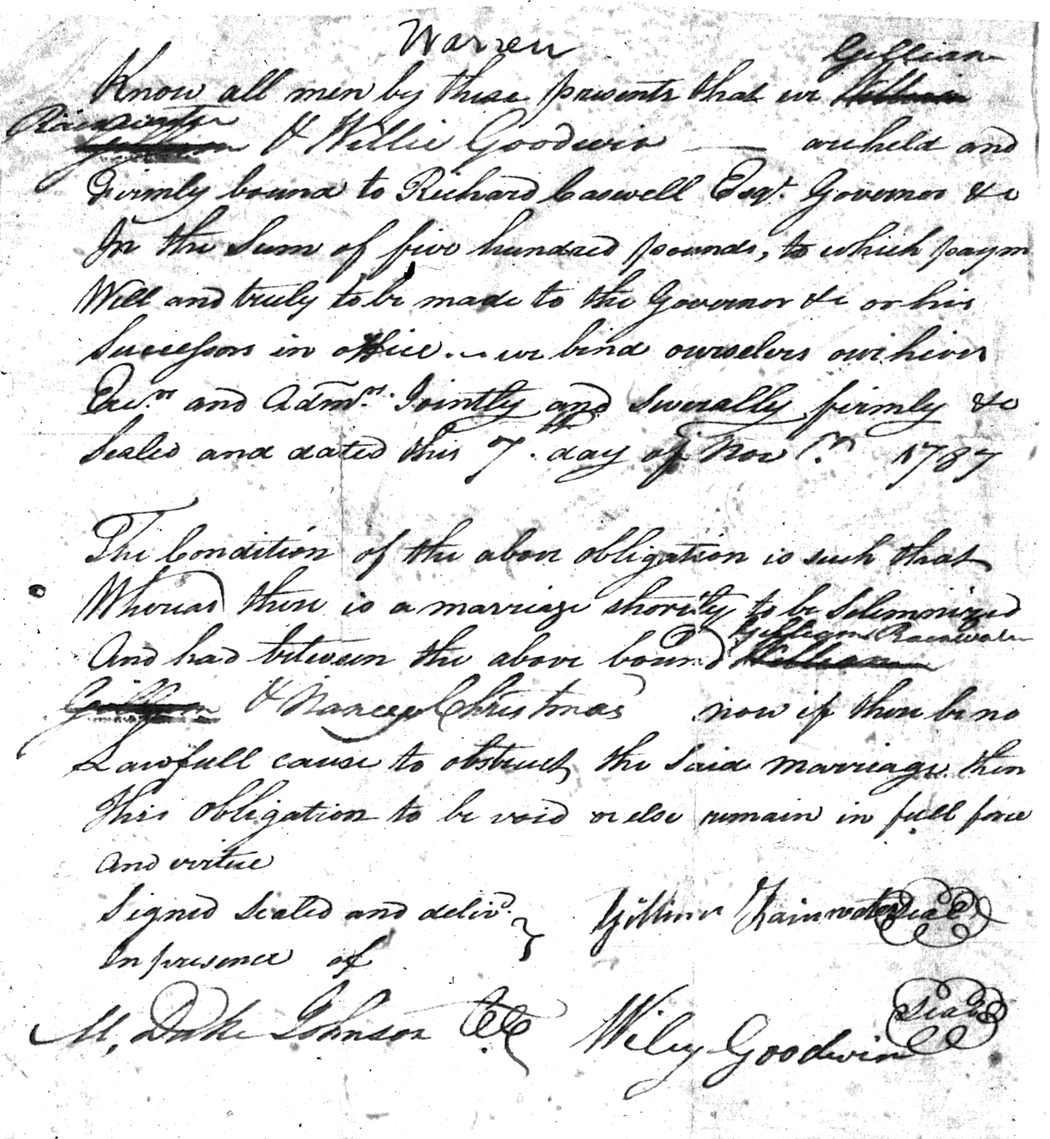 Warren
Gillian
Know all men by these presents that we William
Rainwater
Gilliam & Willie Goodwin — are held and
Firmly bound to Richard Caswell Esqr. Governor &c
In the Sum of five hundred pounds, to which paym
Well and truly to be made to the Governor &c or his
Successors in office. we bind ourselves our heirs
Exrs. and Admrs. Jointly and Severally firmly &c
Sealed and dated this 7th. day of Novr. 1787
The Condition of the above obligation is such that
Whereas there is a marriage shortly to be Solemnized
Gilliam Rainwater
And had between the above bound William
Gilliam & Nancey Christmas now if there be no
Lawfull cause to obstruct the said marriage then
this obligation to be void or else remain in full force
and virtue
Signed Sealed and delivd.
In presence of
Gilliam Rainwater Seal
M. Duke Johnson CC
Wiley Goodwin Seal